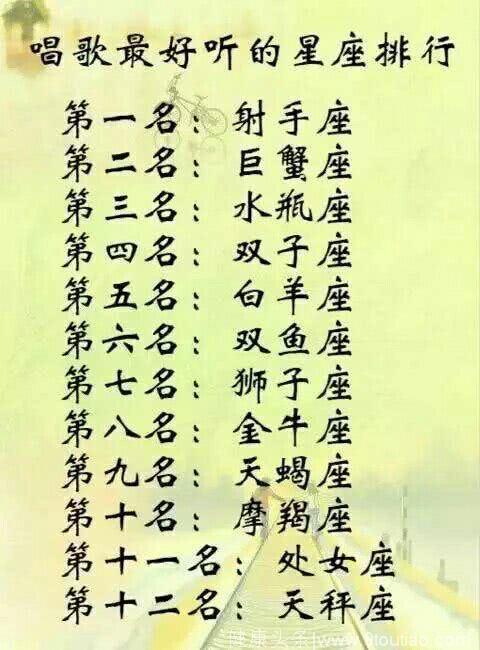 唱歌最好听的星座排行
第一名：射手座
第二名：巨蟹座
第三名：水瓶座
第四名：双子座
第五名：白羊座
第六名：双鱼座
第七名：狮子座
第八名：金牛座
第九名：天蝎座
第十名：摩羯座
第十一名：处女座
第十二名：天秤座
健康头条|www.9toutiao.com